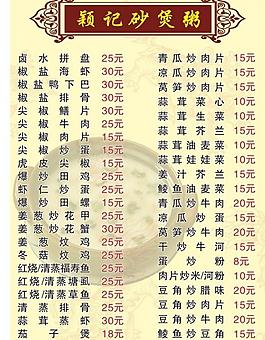 颖记砂煲粥
卤水拼盘 25元
椒盐海虾 30元
椒盐鸭下巴 30元
椒盐排骨 30元
尖椒鳝片 30元
尖椒牛肉 25元
尖椒肉片 15元
尖椒炒蛋 15元
虎皮尖椒 15元
爆炒田鸡 25元
虾仁炒蛋 25元
爆炒田螺 15元
姜葱炒花甲 25元
姜葱炒蟹 30元
姜葱炆鸡 25元
冬菇炆鸡 25元
红烧/清蒸福寿鱼 25元
红烧/清蒸塘虱 25元
红烧/清蒸草鱼 25元
清蒸排骨 25元
蒜茸蒸虾 30元
茄子煲 18元
青瓜炒肉片 15元
凉瓜炒肉片 15元
莴笋炒肉片 15元
蒜茸菜心 10元
蒜茸生菜 10元
蒜茸芥兰 15元
蒜茸油麦菜 10元
蒜茸娃娃菜 10元
姜汁芥兰 15元
鲮鱼油麦菜 15元
青瓜炒牛肉 20元
凉瓜炒蛋 15元
莴笋炒牛肉 20元
干炒牛河 15元
蛋炒粉 8元
肉片炒米/河粉 10元
豆角炒腊味 20元
豆角炒肉片 15元
豆角炒牛腩 20元
鲮鱼炒豆角 15元